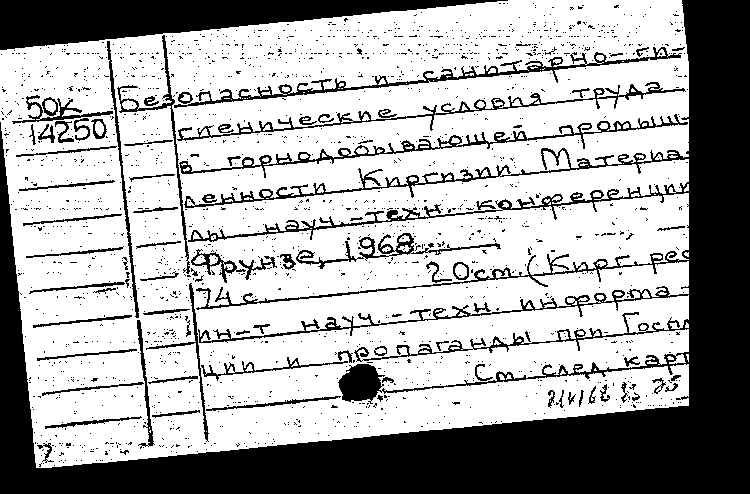 50К
14250
Безопасность и санитарно-ги-
гиенические условия труда
в горнодобывающей промыш-
ленности Киргизии. Материа-
лы науч.-техн. конференции
Фрунзе, 1968
74 с. 20 см. (Кирг. рес
ин-т науч.-техн. информа-
ции и пропаганды при Госпл
См. след. карт